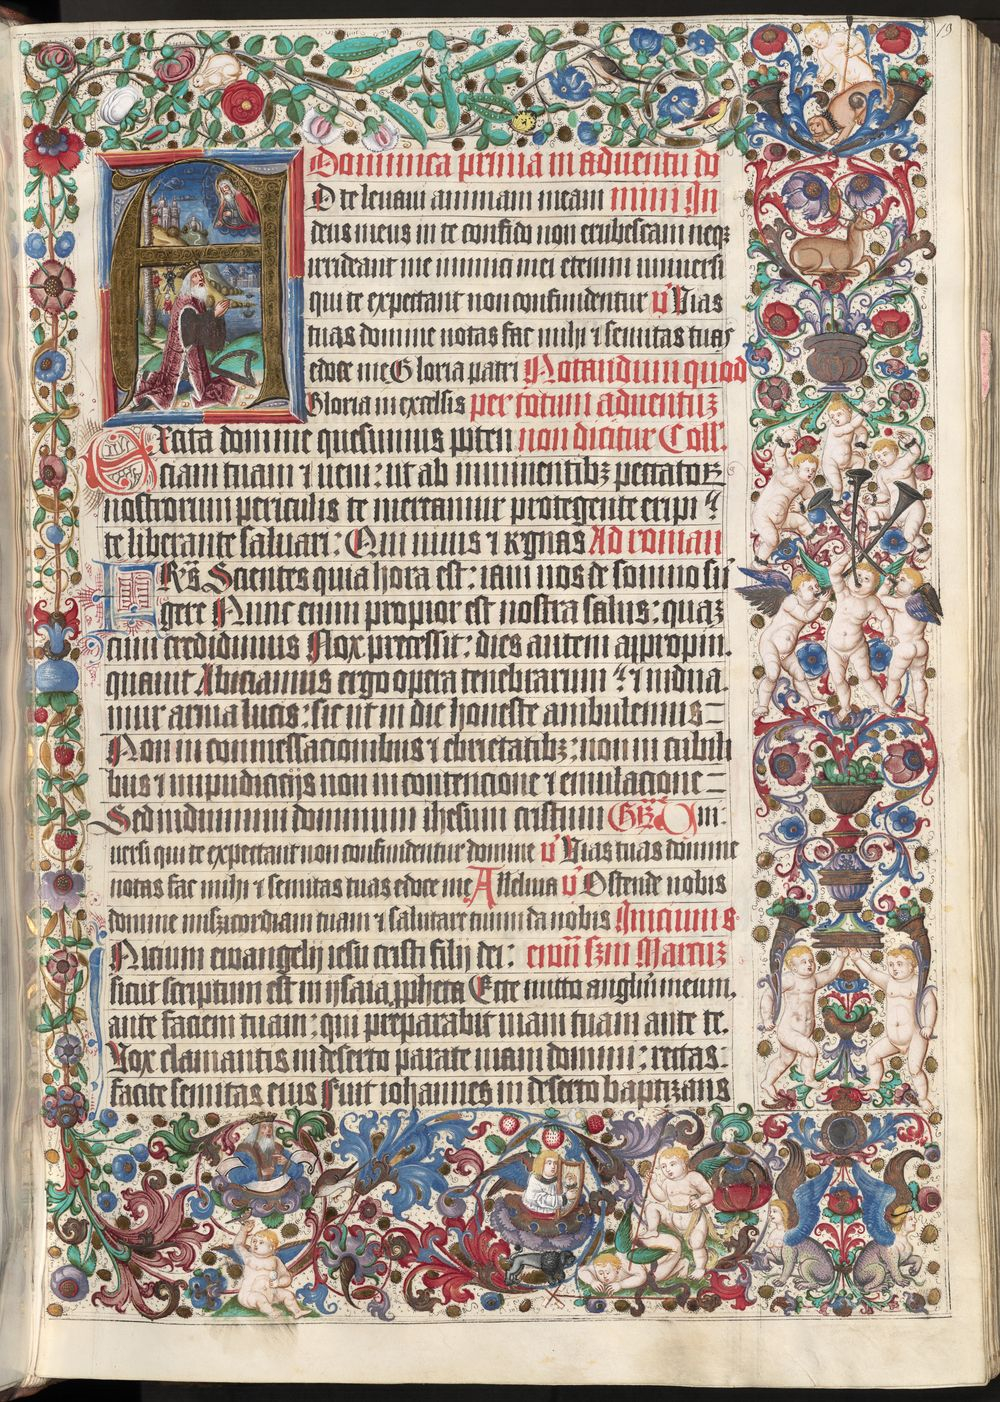 19
Dominica prima in aduentu do
A
D te leuaui animam meam mini In
deus meus in te confido non erubescam neqz
irrideant me inimici mei etenim uniuersi
qui te expectant non confundentur v̄ Vias
tuas domine notas fac mihi ⁊ semitas tuas
edoce me Gloria patri Notandum quod
Gloria in excelsis per totum aduentuz
Excita domine quesumus poten non dicitur Coll'.
ciam tuam ⁊ ueni: ut ab imminentibz peccatorz
nostrorum periculis te mereamur protegente eripi
te liberante saluari: Qui uiuis ⁊ regnas Ad roman
FRēs Scientes quia hora est: iam nos de somno sur
gere Nunc enim propior est nostra salus: quaz
cum credidimus Nox precessit: dies autem appropin.
quauit Abiciamus ergo opera tenebrarum ⁊ indua.
mur arma lucis: sic ut in die honeste ambulemus
Non in commessacionibus ⁊ ebrietatibz: non in cubili
bus ⁊ impudicicijs non in contencione ⁊ emulacione
Sed induimini dominum ihesum cristum Gr̄e Un:
uersi qui te expectant non confundentur domine v̄ Vias tuas domine
notas fac mihi ⁊ semitas tuas edoce me Alleluia v̄ Ostende nobis
domine misericordiam tuam ⁊ salutare tuum da nobis Inicium s
INicium ewangelij iesu cristi filij dei: ewn̄ scdm Marcuz
sicut scriptum est in ysaia ppheta Ecce mitto anglm meum.
ante faciem tuam: qui preparabit uiam tuam ante te.
Vox clamantis in deserto parate uiam domini: rectas:
facite semitas eius Fuit iohannes in deserto baptizans